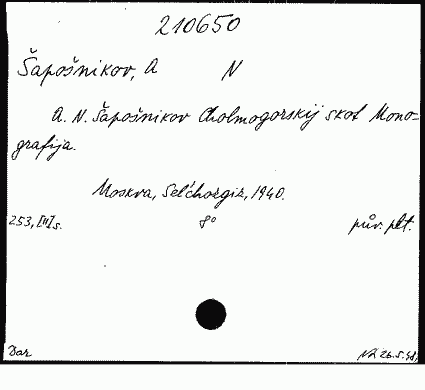 210650
Šapošnikov, A N
A. N. Šapošnikov Cholmogorskij skot Mono-
grafija.
Moskva, Sel'chozgiz, 1940.
253, [II] s. 8° pův. plt.
Dar 26.5.48.